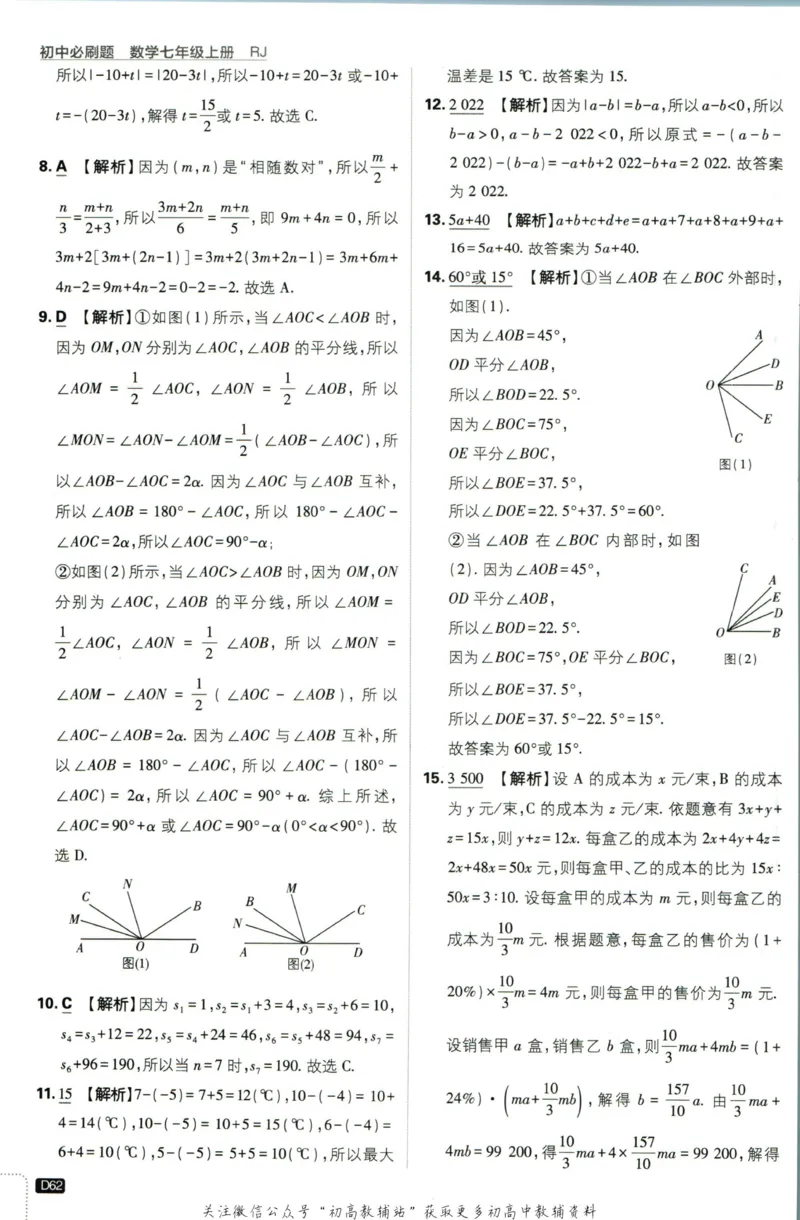 初中必刷题 数学七年级上册 RJ
所以|-10+t|=|20-3t|,所以-10+t=20-3t 或-10+
t=-(20-3t),解得 t=15/2或 t=5. 故选 C.
8. A 【解析】因为(m,n)是“相随数对”,所以m/2+
n/3=(m+n)/(2+3),所以(3m+2n)/6=(m+n)/5,即 9m+4n=0,所以
3m+2[3m+(2n-1)]=3m+2(3m+2n-1)=3m+6m+
4n-2=9m+4n-2=0-2=-2. 故选 A.
9. D 【解析】①如图(1)所示,当∠AOC<∠AOB 时,
因为 OM,ON 分别为∠AOC,∠AOB 的平分线,所以
∠AOM = 1/2 ∠AOC, ∠AON = 1/2 ∠AOB, 所以
∠MON=∠AON-∠AOM=1/2(∠AOB-∠AOC),所
以∠AOB-∠AOC=2α. 因为∠AOC 与∠AOB 互补,
所以 ∠AOB = 180°-∠AOC, 所以 180°-∠AOC-
∠AOC=2α,所以∠AOC=90°-α;
②如图(2)所示,当∠AOC>∠AOB 时,因为 OM,ON
分别为 ∠AOC, ∠AOB 的平分线, 所以 ∠AOM =
1/2∠AOC, ∠AON = 1/2 ∠AOB, 所以 ∠MON =
∠AOM - ∠AON = 1/2 ( ∠AOC - ∠AOB ), 所以
∠AOC-∠AOB=2α. 因为∠AOC 与∠AOB 互补,所
以 ∠AOB = 180°-∠AOC, 所以 ∠AOC-(180°-
∠AOC)= 2α, 所以 ∠AOC = 90°+α. 综上所述,
∠AOC=90°+α 或∠AOC=90°-α(0°<α<90°). 故
选 D.
N
C
B
M
A O D
图(1)
M
B
C
N
A O D
图(2)
10. C 【解析】因为 s₁=1,s₂=s₁+3=4,s₃=s₂+6=10,
s₄=s₃+12=22,s₅=s₄+24=46,s₆=s₅+48=94,s₇=
s₆+96=190,所以当 n=7 时,s₇=190. 故选 C.
11. 15 【解析】7-(-5)=7+5=12(℃),10-(-4)=10+
4=14(℃),10-(-5)=10+5=15(℃),6-(-4)=
6+4=10(℃),5-(-5)=5+5=10(℃),所以最大
温差是 15 ℃. 故答案为 15.
12. 2 022 【解析】因为|a-b|=b-a,所以 a-b<0,所以
b-a>0, a-b-2 022<0, 所以原式=-(a-b-
2 022)-(b-a)=-a+b+2 022-b+a=2 022. 故答案
为 2 022.
13. 5a+40 【解析】a+b+c+d+e=a+a+7+a+8+a+9+a+
16=5a+40. 故答案为 5a+40.
14. 60°或 15° 【解析】①当∠AOB 在∠BOC 外部时,
如图(1).
因为∠AOB=45°,
OD 平分∠AOB,
所以∠BOD=22.5°.
因为∠BOC=75°,
OE 平分∠BOC,
所以∠BOE=37.5°,
所以∠DOE=22.5°+37.5°=60°.
A
D
O B
E
C
图(1)
②当 ∠AOB 在 ∠BOC 内部时, 如图
(2). 因为∠AOB=45°,
OD 平分∠AOB,
所以∠BOD=22.5°.
因为∠BOC=75°,OE 平分∠BOC,
所以∠BOE=37.5°,
所以∠DOE=37.5°-22.5°=15°.
故答案为 60°或 15°.
C
A
E
D
O B
图(2)
15. 3 500 【解析】设 A 的成本为 x 元/束,B 的成本
为 y 元/束,C 的成本为 z 元/束. 依题意有 3x+y+
z=15x,则 y+z=12x. 每盒乙的成本为 2x+4y+4z=
2x+48x=50x 元,则每盒甲、乙的成本的比为 15x:
50x=3:10. 设每盒甲的成本为 m 元,则每盒乙的
成本为10/3 m 元. 根据题意,每盒乙的售价为(1+
20%)×10/3 m=4m 元,则每盒甲的售价为10/3 m 元.
设销售甲 a 盒,销售乙 b 盒,则10/3 ma+4mb=(1+
24%)·(ma+10/3 mb),解得 b=157/10 a. 由10/3 ma+
4mb=99 200,得10/3 ma+4×157/10 ma=99 200,解得
D62
关注微信公众号“初高教辅站”获取更多初高中教辅资料